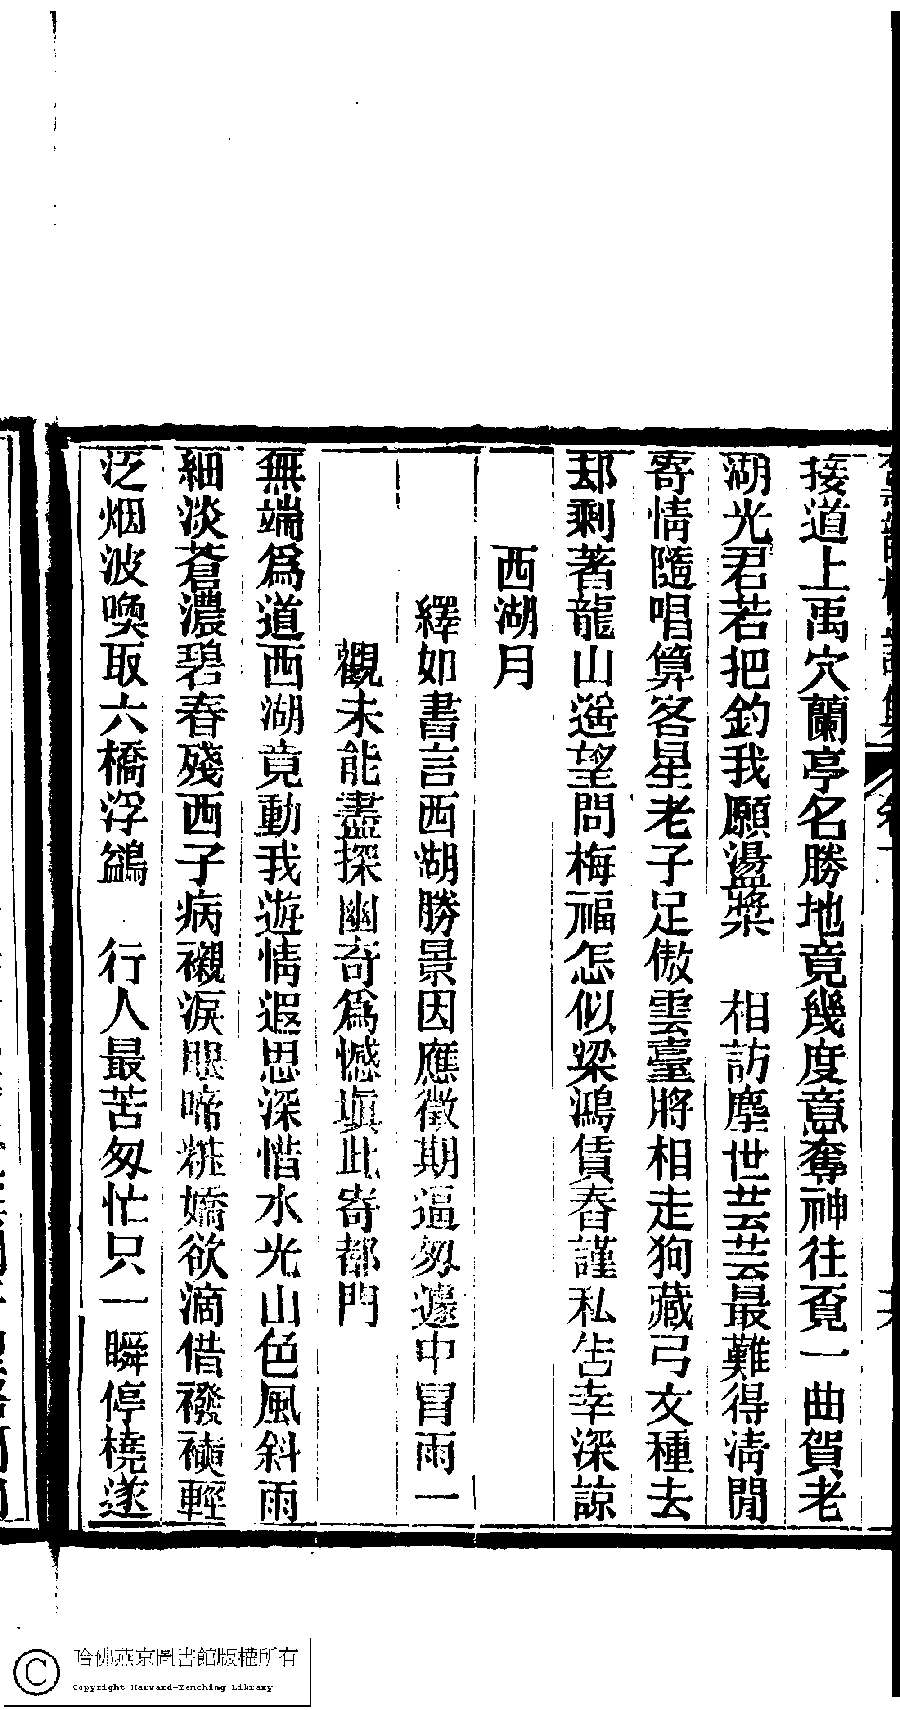 接道上禹穴蘭亭名勝地竟幾度意奪神往覔一曲賀老
湖光君若把釣我願盪槳　相訪塵世芸芸最難得淸閒
寄情隨唱算客星老子足傲雲臺將相走狗藏弓文種去
却剩著龍山遙望問梅福怎似梁鴻賃舂謹私告幸深諒
西湖月
繹如書言西湖勝景因應徵期逼匆遽中冒雨一
觀未能盡探幽奇爲憾塡此寄都門
無端爲道西湖竟動我遊情遐思深惜水光山色風斜雨
細淡蒼濃碧春殘西子病襯淚眼啼粧嬌欲滴借襏襫輕
泛烟波喚取六橋浮鷁　行人最苦匆忙只一瞬停橈遂
哈佛燕京圖書館版權所有
Copyright Harvard-Yenching Library